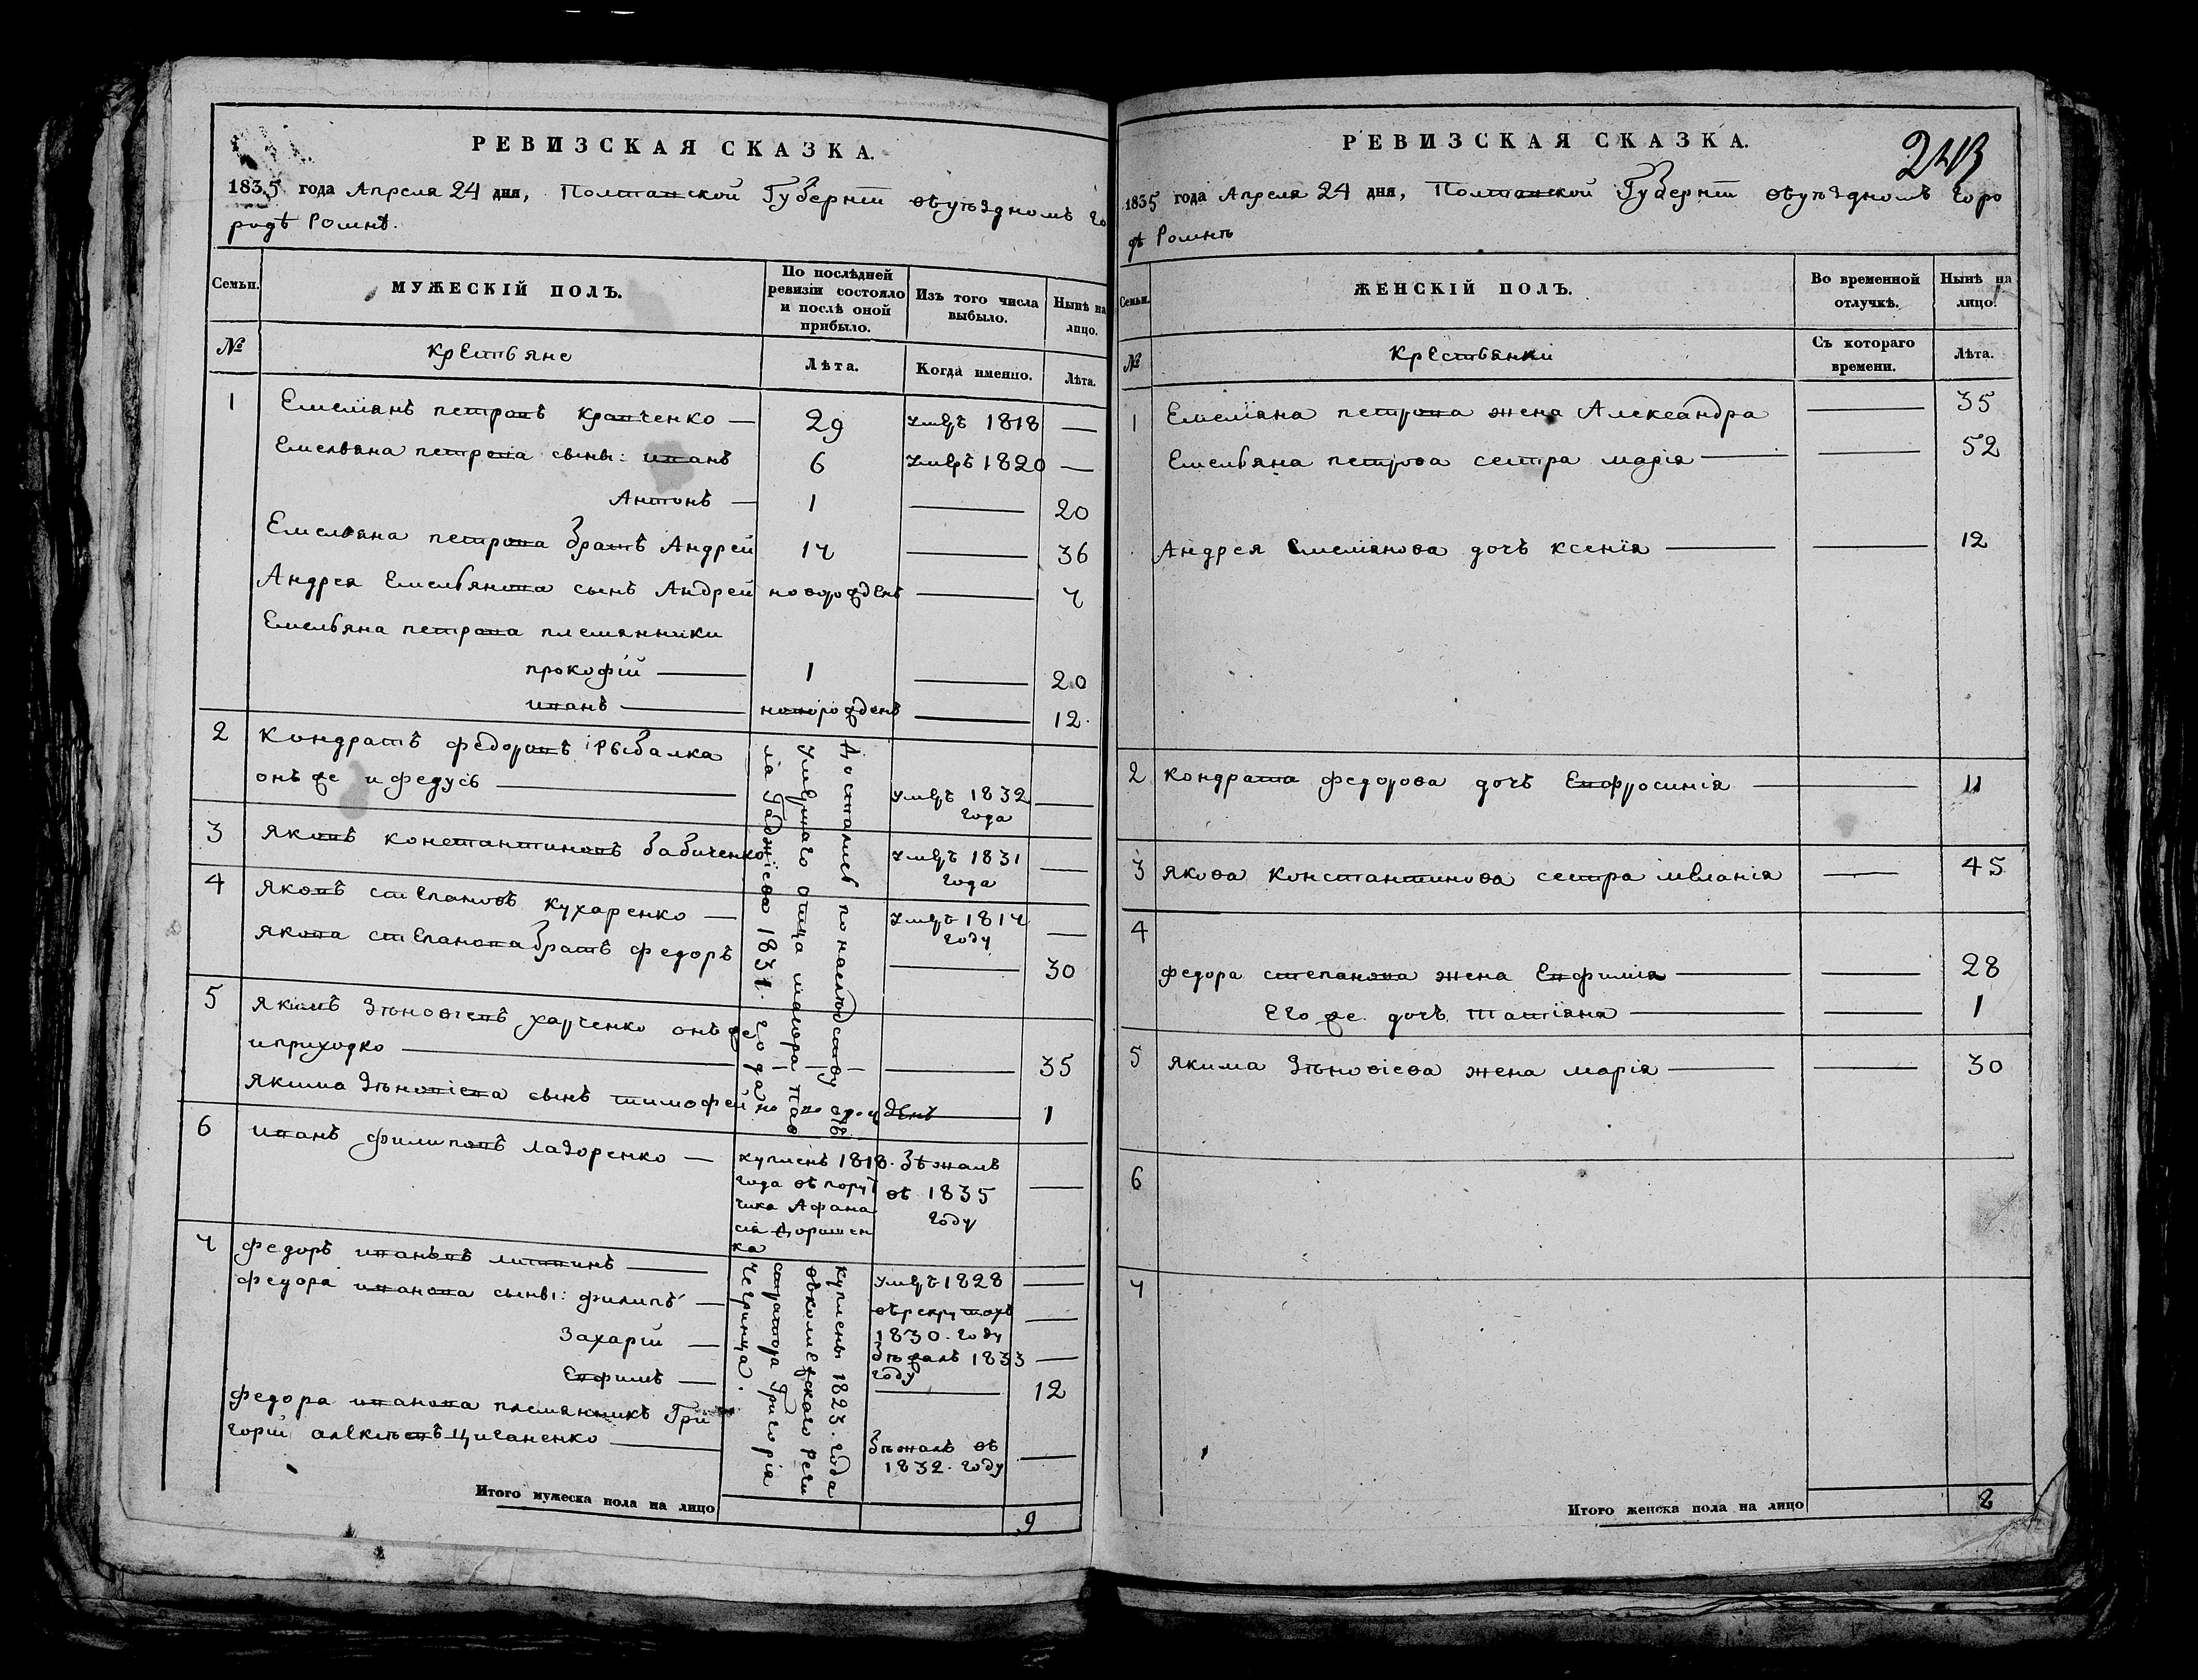 РЕВИЗСКАЯ СКАЗКА.
1835 года Апреля 24 дня, Полтавской Губернїи въ уѣздномъ го
родѣ Ромнѣ.
Семьи. МУЖЕСКІЙ ПОЛЪ. По послѣдней ревизіи состояло и послѣ оной прибыло. Изъ того числа выбыло. Нынѣ на лицо.
№ Крестьяне Лѣта. Когда именно. Лѣта.
1 Емеліянъ петровъ кравченко — 29 умеръ 1818 —
Емельяна петрова сыны: иванъ 6 умеръ 1820 —
Антонъ — 1 — 20
Емельяна петрова братъ Андрей 17 — 36
Андрея Емельянова сынъ Андрей новорожденъ — 7
Емельяна петрова племянники
прокофій — 1 — 20
иванъ — новорожденъ — 12.
2 Кондратъ федоровъ Рыбалка
онъ же и федусь — умеръ 1832 —
года
3 яковъ константиновъ бабиченко умеръ 1831 —
года
4 яковъ степановъ кухаренко — умеръ 1817 —
году
якова степанова братъ федоръ — 30
5 якимъ Зѣновіевъ харченко онъ же
и приходко — — 35
якима Зѣновіева сынъ тимофей новорожденъ — 1
Достались по наслѣдству отъ
умершаго отца маіора Пав
ла Гаджіева 1831. года
6 иванъ филиповъ лазоренко — купленъ 1818. бѣжалъ —
года въ пору въ 1835
чика Афана году
сія Дорошен
ка
7 федоръ ивановъ литвинъ — умеръ 1828 —
федора иванова сыны: филипъ — въ рекрутахъ —
1830. году
Захарій — бѣжалъ 1833 —
году
Евфимъ — — 12
федора иванова племянникъ Гри
горій алексѣевъ циганенко — бѣжалъ въ —
1832. году
куплены 1823. года
въ колежского Реги
стратора Григорія
Чегринца.
Итого мужеска пола на лицо 9
243
РЕВИЗСКАЯ СКАЗКА.
1835 года Апреля 24 дня, Полтавской Губернїи въ уѣздномъ горо
дѣ Ромнѣ
Семьи. ЖЕНСКІЙ ПОЛЪ. Во временной отлучкѣ. Нынѣ на лицо.
№ Крестьянки Съ котораго времени. Лѣта.
1 Емеліяна петрова жена Александра — 35
Емельяна петрова сестра марія — — 52
Андрея Емеліянова дочь ксенія — — 12
2 кондрата федорова дочь Евфросинія — 11
3 якова константинова сестра меланія — 45
4
федора степанова жена Евфимія — — 28
Его же дочь татіяна — — 1
5 якима Зѣновіева жена марія — — 30
6
7
Итого женска пола на лицо 8